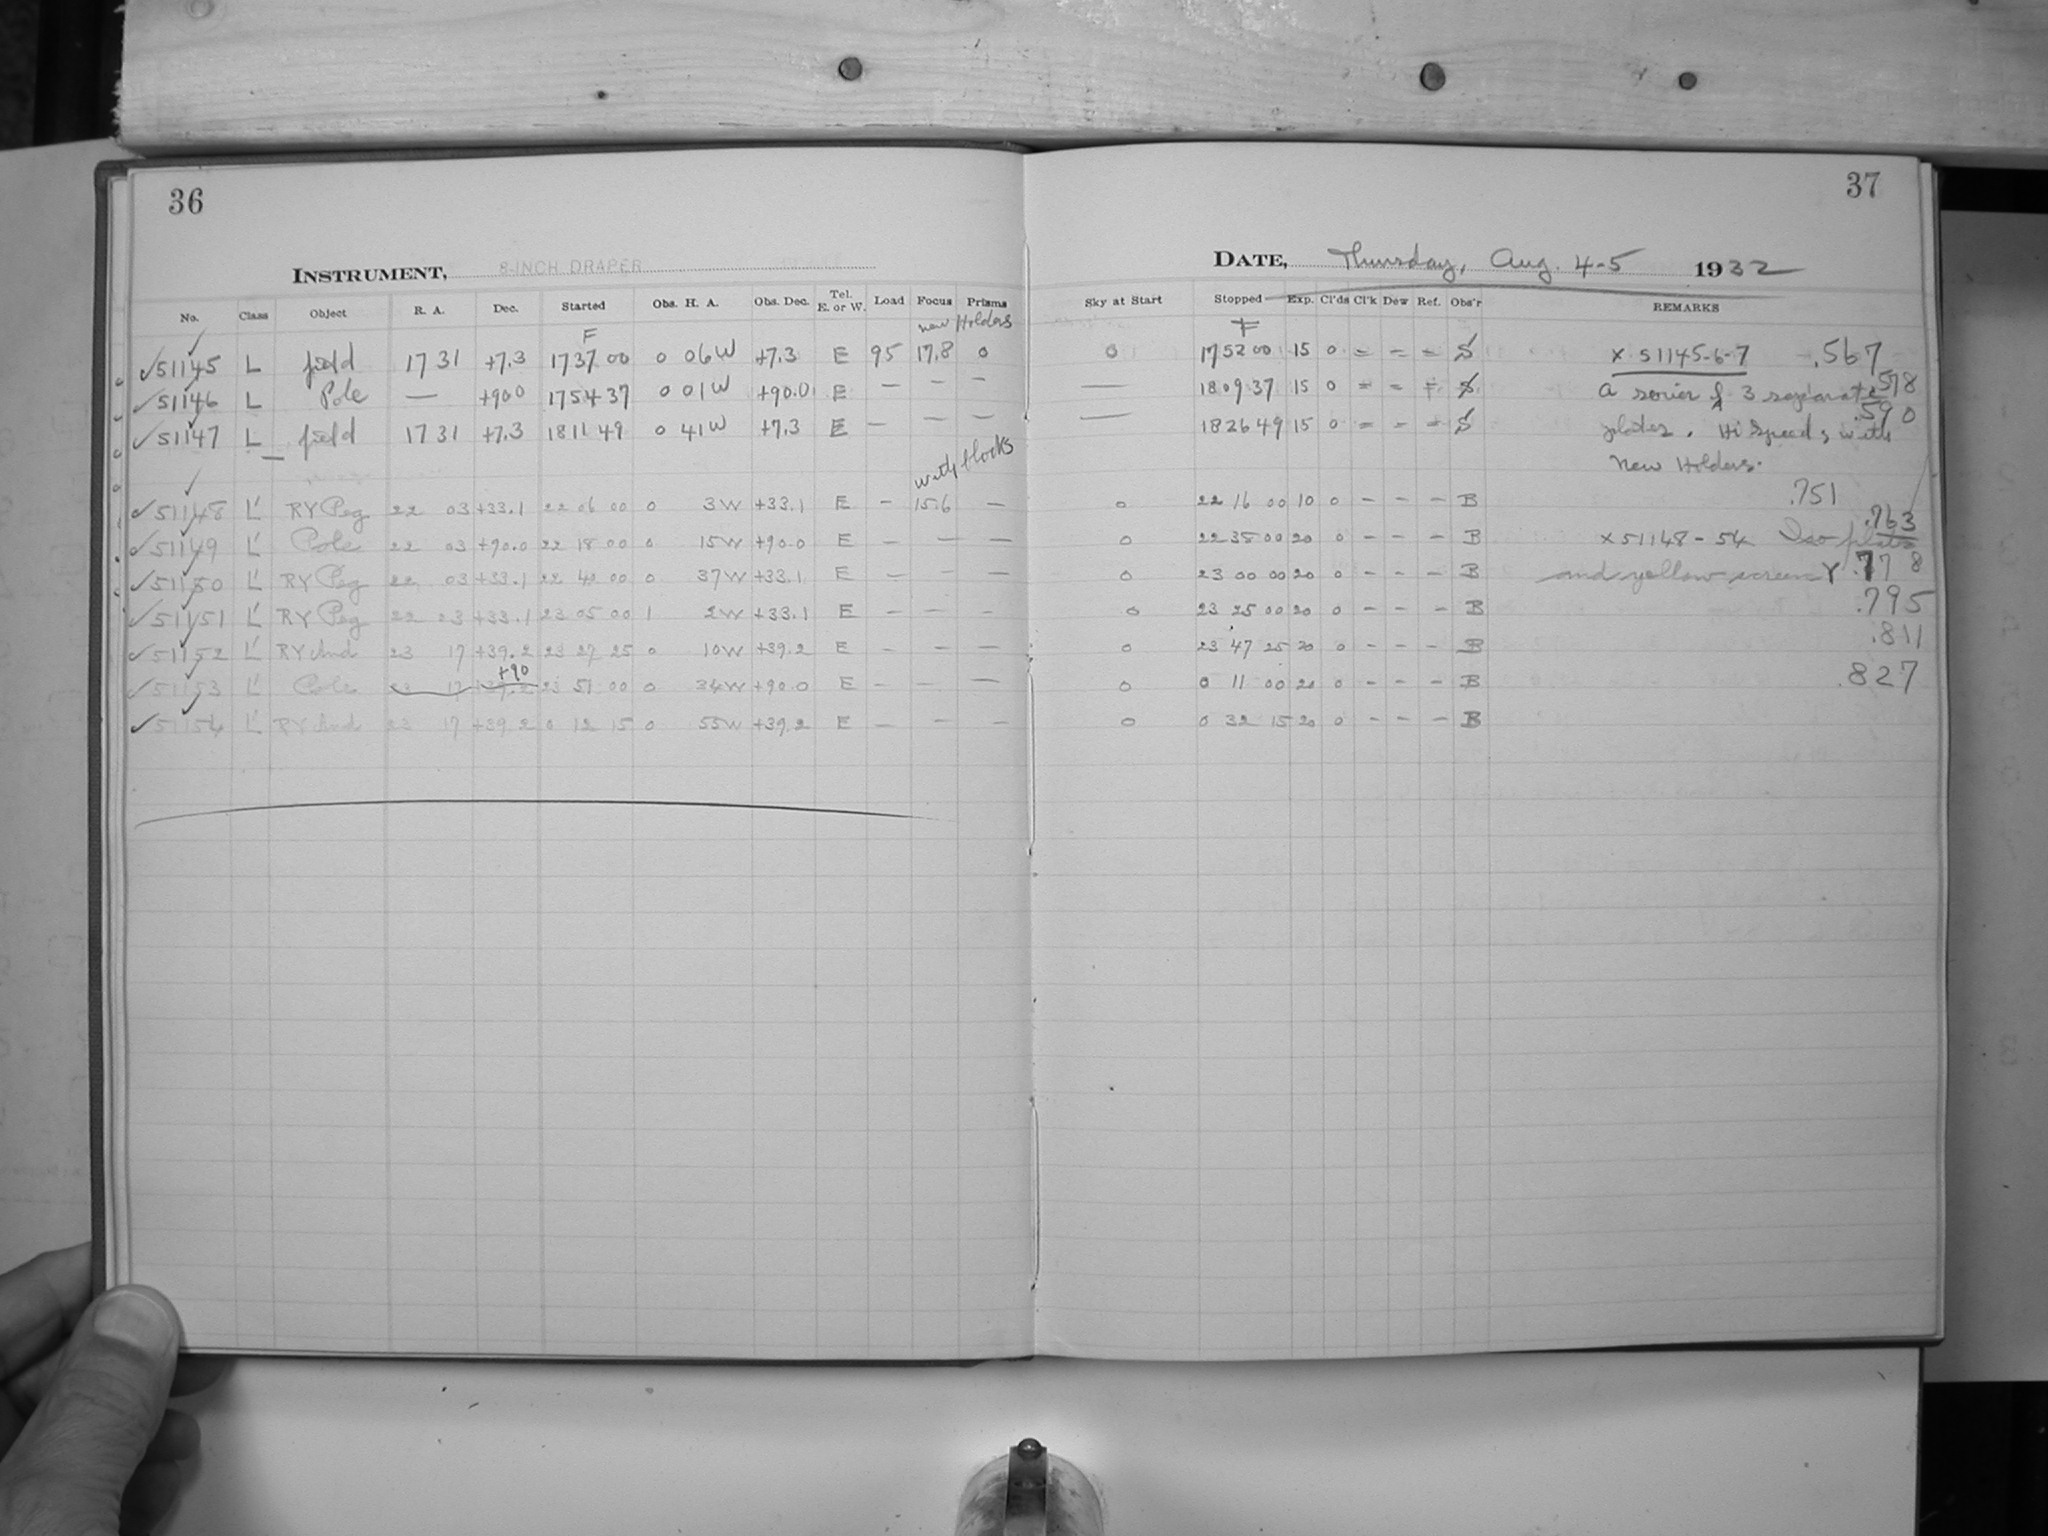 36
37
INSTRUMENT, 8-INCH DRAPER
DATE, Thursday, Aug. 4-5 1932
No. Class Object R. A. Dec. Started Obs. H. A. Obs. Dec. Tel. E. or W. Load Focus Prisms Sky at Start Stopped Exp. Cl'ds Cl'k Dew Ref. Obs'r REMARKS
F new Holders F
✓51145 L field 17 31 +7.3 17 37 00 0 06W +7.3 E 95 17.8 0 0 17 52 00 15 0 = = = S x 51145-6-7 .567
✓51146 L Pole — +90.0 17 54 37 0 01W +90.0 E — — — — 18 09 37 15 0 = = = S A series of 3 separate .578
✓51147 L field 17 31 +7.3 18 11 49 0 41W +7.3 E — — — — 18 26 49 15 0 = = = S plates. Hi Speeds with .590
with blocks New Holders.
✓51148 L' RY Peg 22 03 +33.1 22 06 00 0 3W +33.1 E - 15.6 — 0 22 16 00 10 0 - - - B .751
✓51149 L' Pole 22 03 +90.0 22 18 00 0 15W +90.0 E — — — 0 22 38 00 20 0 - - - B x51148-54 Iso plates .763
✓51150 L' RY Peg 22 03 +33.1 22 40 00 0 37W +33.1 E — — — 0 23 00 00 20 0 - - - B and yellow screen Y .778
✓51151 L' RY Peg 22 03 +33.1 23 05 00 1 2W +33.1 E — — — 0 23 25 00 20 0 - - - B .795
✓51152 L' RY And 23 17 +39.2 23 27 25 0 10W +39.2 E — — — 0 23 47 25 20 0 - - - B .811
+90
✓51153 L' Pole 23 17 +39.2 23 51 00 0 34W +90.0 E — — — 0 0 11 00 20 0 - - - B .827
✓51154 L' RY And 23 17 +39.2 0 12 15 0 55W +39.2 E — — — 0 0 32 15 20 0 - - - B